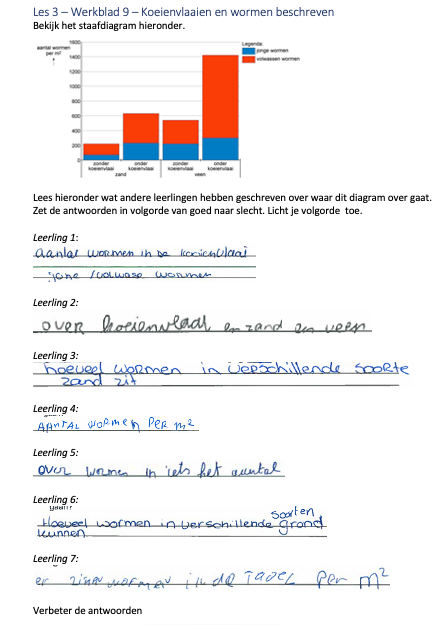 Les 3 – Werkblad 9 – Koeienvlaaien en wormen beschreven
Bekijk het staafdiagram hieronder.
aantal wormen
per m²
1600
1400
1200
1000
800
600
400
200
0
Legenda:
jonge wormen
volwassen wormen
zonder koeienvlaai
onder koeienvlaai
zonder koeienvlaai
onder koeienvlaai
zand
veen
Lees hieronder wat andere leerlingen hebben geschreven over waar dit diagram over gaat.
Zet de antwoorden in volgorde van goed naar slecht. Licht je volgorde toe.
Leerling 1:
aantal wormen in de koeienvlaai
jone / volwase wormen
Leerling 2:
over koeienvlaai en zand en veen
Leerling 3:
hoeveel wormen in verschillende soorte
zand zit
Leerling 4:
AANTAL WORMEN PER m²
Leerling 5:
over wormen in iets het aantal
Leerling 6:
gaan
soorten
Hoeveel wormen in verschillende grond
kunnen
Leerling 7:
er zitten wormen in de TABEL Per m²
Verbeter de antwoorden